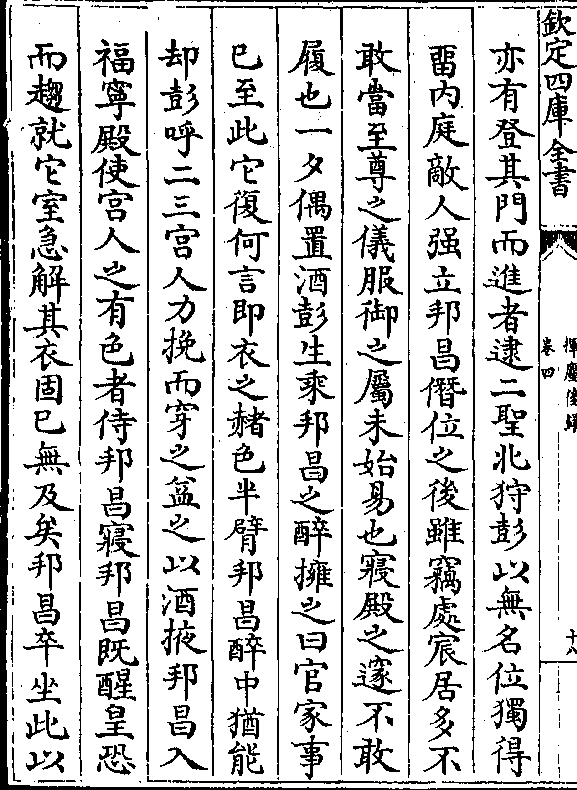 欽定四庫全書
揮麈後錄
卷四
十八
亦有登其門而進者逮二聖北狩彭以無名位獨得
畱内庭敵人强立邦昌僭位之後雖竊處宸居多不
敢當至尊之儀服御之屬未始易也寢殿之邃不敢
履也一夕偶置酒彭生乘邦昌之醉擁之曰官家事
已至此它復何言即衣之赭色半臂邦昌醉中猶能
却彭呼二三宫人力挽而穿之益之以酒掖邦昌入
福寧殿使宫人之有色者侍邦昌寢邦昌既醒皇恐
而趨就它室急解其衣固已無及矣邦昌卒坐此以